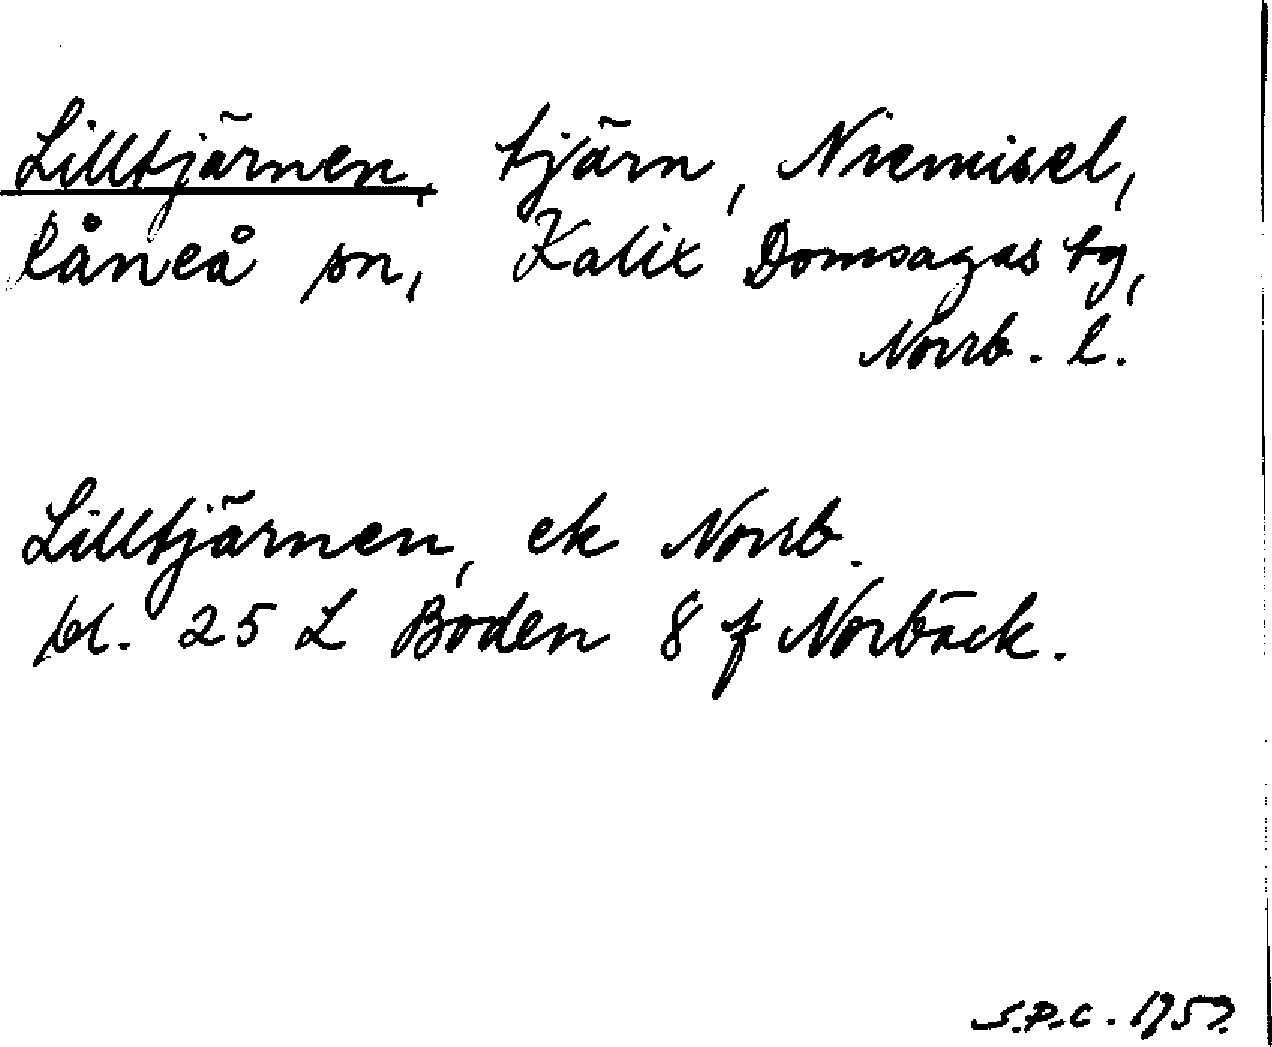 Lilltjärnen, tjärn, Niemisel,
Råneå sn, Kalix Domsagas tg,
Norrb. l.
Lilltjärnen, ek Norrb.
bl. 25 L Boden 8 f Norbäck.
S.P.C. 1957.